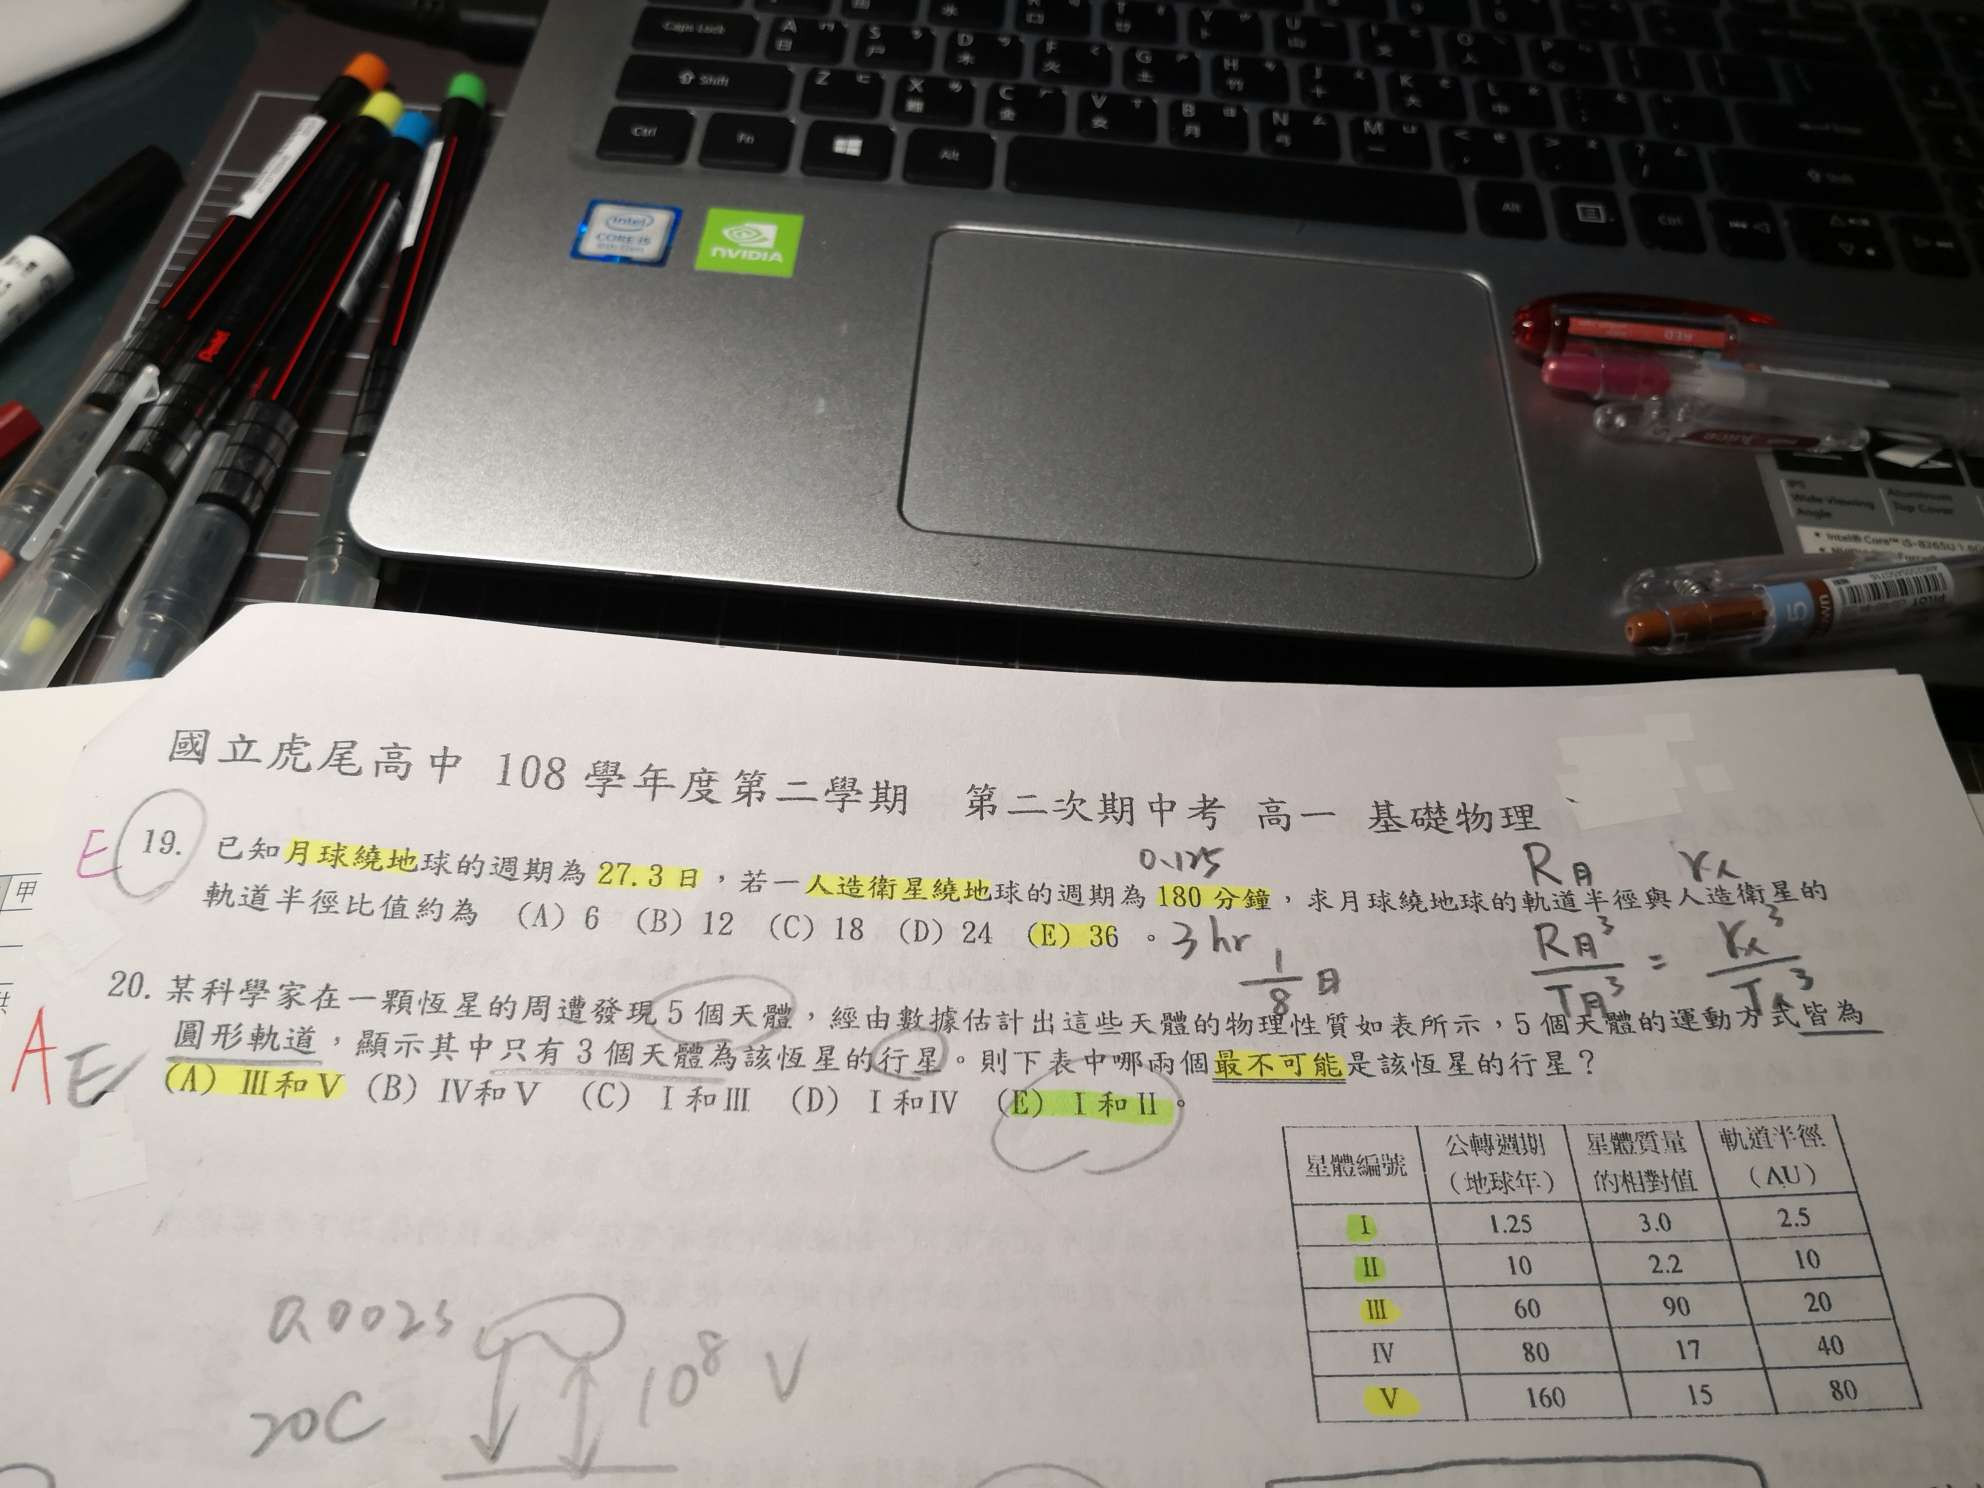 Caps Lock
A
日
S
尸
D
木
F
火
G
土
H
竹
J
十
K
大
L
中
Shift
Z
X
難
C
金
V
女
B
月
N
弓
M
一
Ctrl
Fn
Alt
Alt
Ctrl
intel
CORE i5
8th Gen
NVIDIA
Pentel
RED
JUICE
IPS
Wide Viewing
Angle
Aluminum
Top Cover
Intel® Core™ i5-8265U 1.60
PILOT
國立虎尾高中 108 學年度第二學期 第二次期中考 高一 基礎物理
E
0.125
R月 r人
19. 已知月球繞地球的週期為 27.3 日，若一人造衛星繞地球的週期為 180 分鐘，求月球繞地球的軌道半徑與人造衛星的
軌道半徑比值約為 (A) 6 (B) 12 (C) 18 (D) 24 (E) 36 。
3 hr
1/8 日
R月³/T月³ = r人³/T人³
甲
20. 某科學家在一顆恆星的周遭發現 5 個天體，經由數據估計出這些天體的物理性質如表所示，5 個天體的運動方式皆為
圓形軌道，顯示其中只有 3 個天體為該恆星的行星。則下表中哪兩個最不可能是該恆星的行星？
A E
(A) Ⅲ和Ⅴ (B) Ⅳ和Ⅴ (C) Ⅰ和Ⅲ (D) Ⅰ和Ⅳ (E) Ⅰ和Ⅱ。
星體編號 公轉週期（地球年） 星體質量的相對值 軌道半徑（AU）
I 1.25 3.0 2.5
II 10 2.2 10
III 60 90 20
IV 80 17 40
V 160 15 80
0.002s
20C
10⁸ V